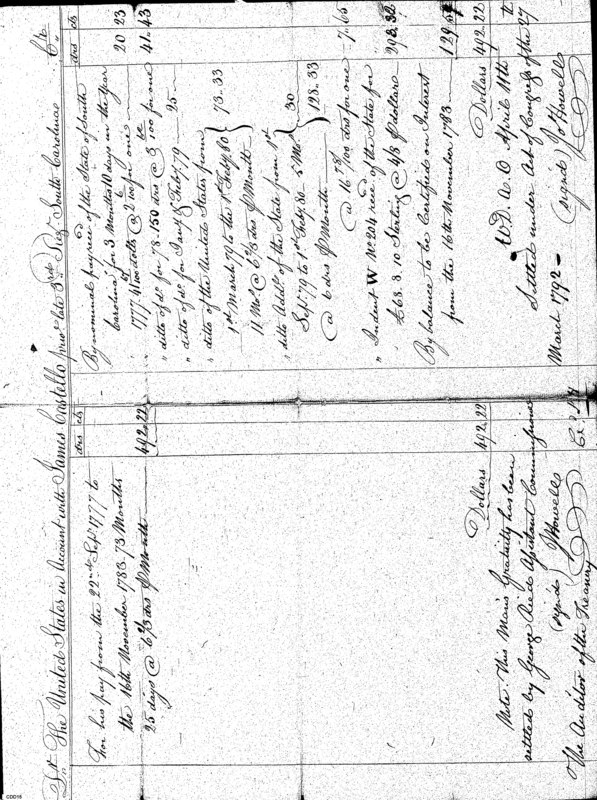 Dr. The United States in Account with James Costello priv. late 3rd Regt. South Carolina Cr.
drs cts
For his pay from the 22nd Sept. 1777 to
the 16th November 1783. 73 Months
25 days @ 6 2/3 drs pr Month 492.22
Dollars 492.22
Note. This Mans Gratuity has been
settled by George Reid Assistant Commissioner
signd J Howells
The Auditor of the Treasury
drs cts
By nominal pay recd of the State of South
Carolina for 3 Months 10 days in the year 20 23
1777 41.43
" ditto of do for 78.150 drs @ 3 100 for one
" ditto of do for Jany & Feby. 79 25
" ditto of the United States from
1st March 79 to the 1st Feby. 80 73.33
11 Mos @ 6 2/3 drs pr Month
" ditto Addl. of the State from 1st
Sept. 79 to 1st Feby. 80 5 Mos 30
@ 6 drs pr Month 128.33
@ 16 78/100 drs for one 7.65
" Indent W No. 204 recd of the State for
£68.8.10 Sterling @ 4/8 pr dollar 293.32
By balance to be Certified on Interest
from the 16th November 1783
Dollars 492.22
W.D. A.O April 11th
Settled under Act of Congress of the 27th
March 1792
signd Jos. Howell
CDD16